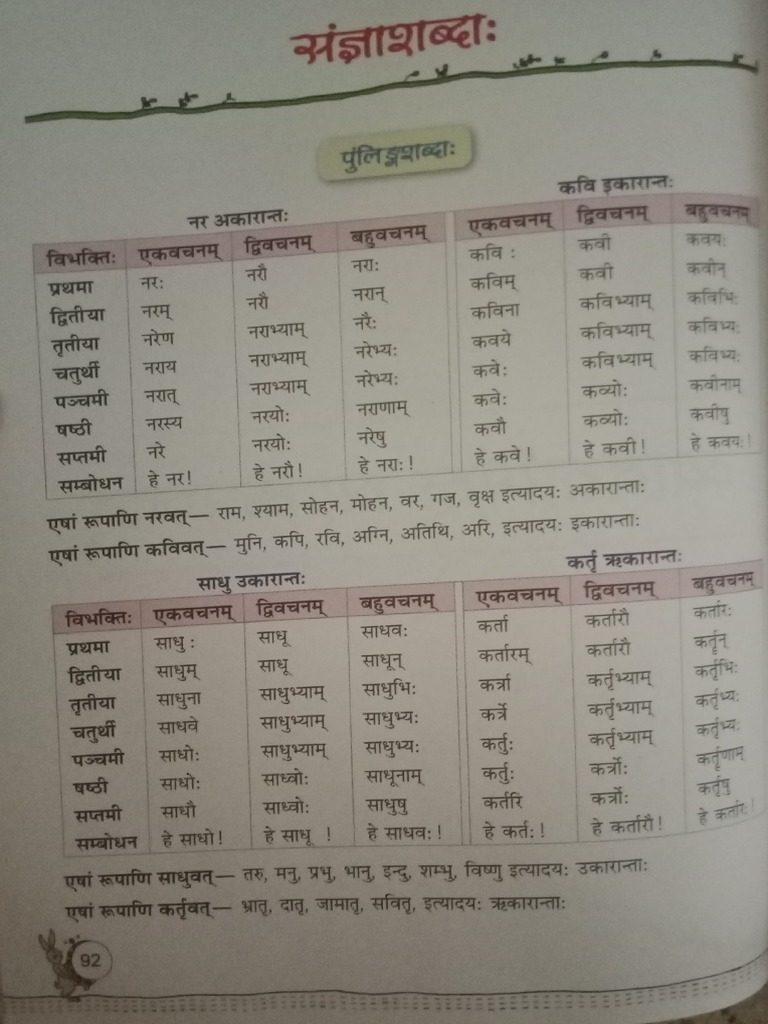 संज्ञाशब्दाः
पुंलिङ्गशब्दाः
नर अकारान्तः कवि इकारान्तः
विभक्तिः एकवचनम् द्विवचनम् बहुवचनम् एकवचनम् द्विवचनम् बहुवचनम्
प्रथमा नरः नरौ नराः कवि : कवी कवयः
द्वितीया नरम् नरौ नरान् कविम् कवी कवीन्
तृतीया नरेण नराभ्याम् नरैः कविना कविभ्याम् कविभिः
चतुर्थी नराय नराभ्याम् नरेभ्यः कवये कविभ्याम् कविभ्यः
पञ्चमी नरात् नराभ्याम् नरेभ्यः कवेः कविभ्याम् कविभ्यः
षष्ठी नरस्य नरयोः नराणाम् कवेः कव्योः कवीनाम्
सप्तमी नरे नरयोः नरेषु कवौ कव्योः कवीषु
सम्बोधन हे नर! हे नरौ! हे नराः! हे कवे! हे कवी! हे कवयः!
एषां रूपाणि नरवत्— राम, श्याम, सोहन, मोहन, वर, गज, वृक्ष इत्यादयः अकारान्ताः
एषां रूपाणि कविवत्— मुनि, कपि, रवि, अग्नि, अतिथि, अरि, इत्यादयः इकारान्ताः
साधु उकारान्तः कर्तृ ऋकारान्तः
विभक्तिः एकवचनम् द्विवचनम् बहुवचनम् एकवचनम् द्विवचनम् बहुवचनम्
प्रथमा साधु : साधू साधवः कर्ता कर्तारौ कर्तारः
द्वितीया साधुम् साधू साधून् कर्तारम् कर्तारौ कर्तॄन्
तृतीया साधुना साधुभ्याम् साधुभिः कर्त्रा कर्तृभ्याम् कर्तृभिः
चतुर्थी साधवे साधुभ्याम् साधुभ्यः कर्त्रे कर्तृभ्याम् कर्तृभ्यः
पञ्चमी साधोः साधुभ्याम् साधुभ्यः कर्तुः कर्तृभ्याम् कर्तृभ्यः
षष्ठी साधोः साध्वोः साधूनाम् कर्तुः कर्त्रोः कर्तॄणाम्
सप्तमी साधौ साध्वोः साधुषु कर्तरि कर्त्रोः कर्तृषु
सम्बोधन हे साधो! हे साधू ! हे साधवः! हे कर्तः! हे कर्तारौ! हे कर्तारः!
एषां रूपाणि साधुवत्— तरु, मनु, प्रभु, भानु, इन्दु, शम्भु, विष्णु इत्यादयः उकारान्ताः
एषां रूपाणि कर्तृवत्— भ्रातृ, दातृ, जामातृ, सवितृ, इत्यादयः ऋकारान्ताः
92